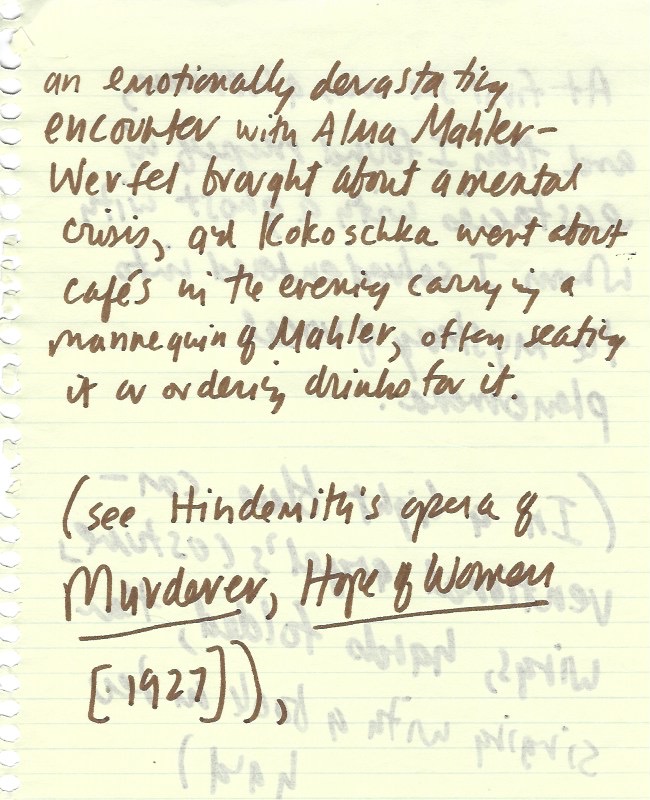 an emotionally devastating
encounter with Alma Mahler-
Werfel brought about a mental
crisis, and Kokoschka went about
cafés in the evening carrying a
mannequin of Mahler, often seating
it or ordering drinks for it.
(see Hindemith's opera of
Murderer, Hope of Women
[1927]),